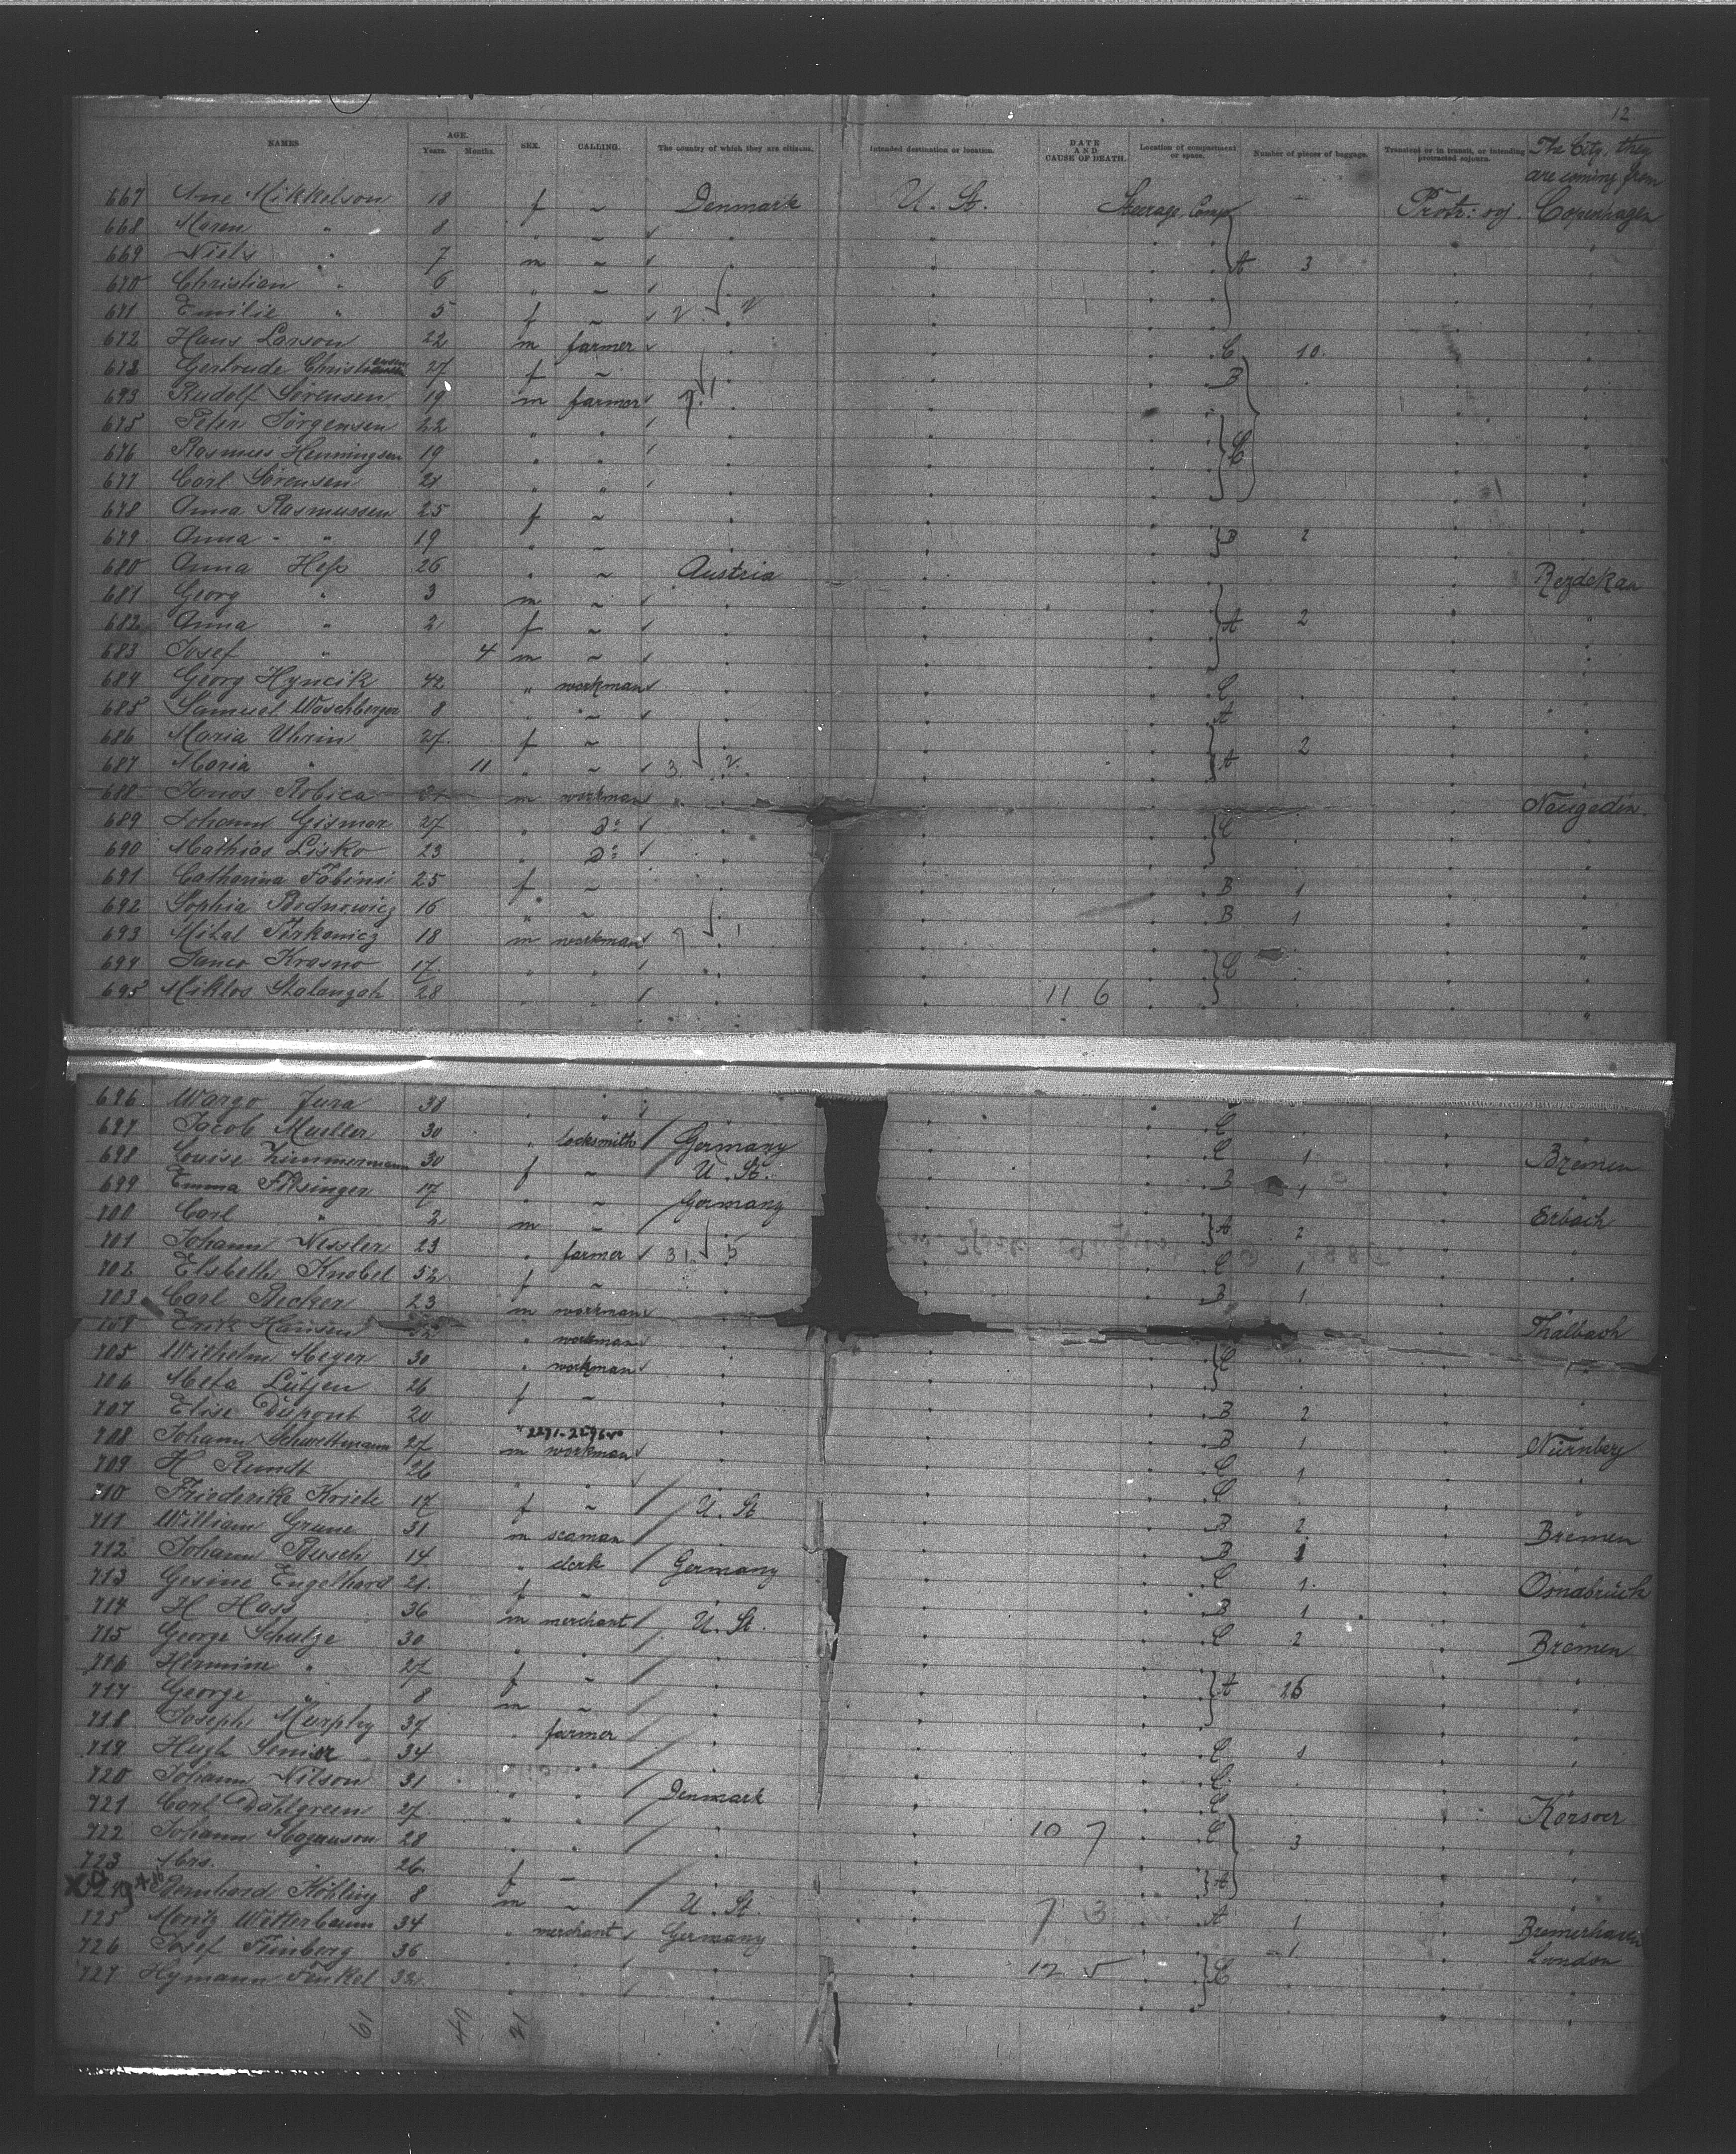 12
NAMES AGE. Years. Months. SEX. CALLING. The country of which they are citizens. Intended destination or location. DATE AND CAUSE OF DEATH. Location of compartment or space. Number of pieces of baggage. Transient or in transit, or intending protracted sojourn. The City, they are coming from
667 Ane Mikkelson 18 f ~ Denmark U. St. Steerage Comp — Protr: soj. Copenhagen
668 Maren " 8 " ~
669 Niels " 7 m ~ A 3
670 Christian " 6 " ~
671 Emilie " 5 f ~ 2 2
672 Hans Larson 22 m farmer C 10
673 Gertrude 27 f ~ B
693 Rudolf Sörensen 19 m farmer
675 Peter Jörgensen 22 " "
676 Rasmus Henningsen 19 " " C
677 Carl Sörensen 21 " "
678 Anna Rasmussen 25 f ~
679 Anna " 19 " ~ B 2
680 Anna Heß 26 " ~ Austria
681 Georg " 3 m ~
682 Anna " 2 f ~ A 2
683 Josef " 4 m ~
684 Georg Hyncik 42 " workman C
685 Samuel Waschberger 8 " ~ A
686 Maria Uhrin 27 f ~ 2
687 Maria " 11 " ~ 3 2 A
688 Janos Robica m workman Neugedin.
689 Johann Gismar 27 " do C
690 Mathias Lisko 23 " do
691 Catharina Fabini 25 f ~ B 1
692 Sophia Bodnowicz 16 " ~ B 1
693 Mihal Firkanicz 18 m workman
694 Janco Krasno 17 " " C
695 Miklos Stalanzah 28 " " 11 6
696 Wargo Jura 38 " " C
697 Jacob Mueller 30 " locksmith Germany C 1 Bremen
698 Louise Zimmermann 30 f ~ U. St. B 1
699 Emma Filsinger 17 " ~ Germany Erbach
700 Carl " 2 m ~ A 2
701 Johann Nessler 23 " farmer 31 5 C 1
702 Elsbeth Knobel 52 f ~ B 1
703 Carl Becker 23 m workman Thalbach
Erik Hansen workman
705 Wilhelm Meyer 30 " workman C
706 Meta Lütjen 26 f ~ B 2
707 Elise Dupont 20 " B 1 Nürnberg
708 Johann Schwettmann 27 m workman C 1
709 H Rundt 26 " " C
710 Friederike Kriete 17 f ~ U. St. B 2 Bremen
711 William Grune 31 m seaman B 1
712 Johann Busch 14 " clerk Germany C 1. Osnabrück
713 Gesine Engelhard 21. f ~ B 1
714 H Hass 36 m merchant U. St. C 2 Bremen
715 George Schulze 30 " "
716 Hermine " 27 f ~ A 26
717 George " 8 m ~
718 Joseph Murphy 37 " farmer C 1
719 Hugh Senior 34 " " C
720 Johann Nilson 31 " " Denmark C Korsoer
721 Carl Dahlgreen 27 " " 10 7 C 3
722 Johann Magnuson 28 " "
723 Mrs. " 26 f ~ A
Bernhard Köhling 8 m ~ U. St. 7 3 A 1 Bremerhaven
725 Moritz Wetterbaum 34 " merchant Germany 1 London
726 Josef Feinberg 36 " " 12 5 C
727 Hymann Fenkel 32 " "
61 40 21